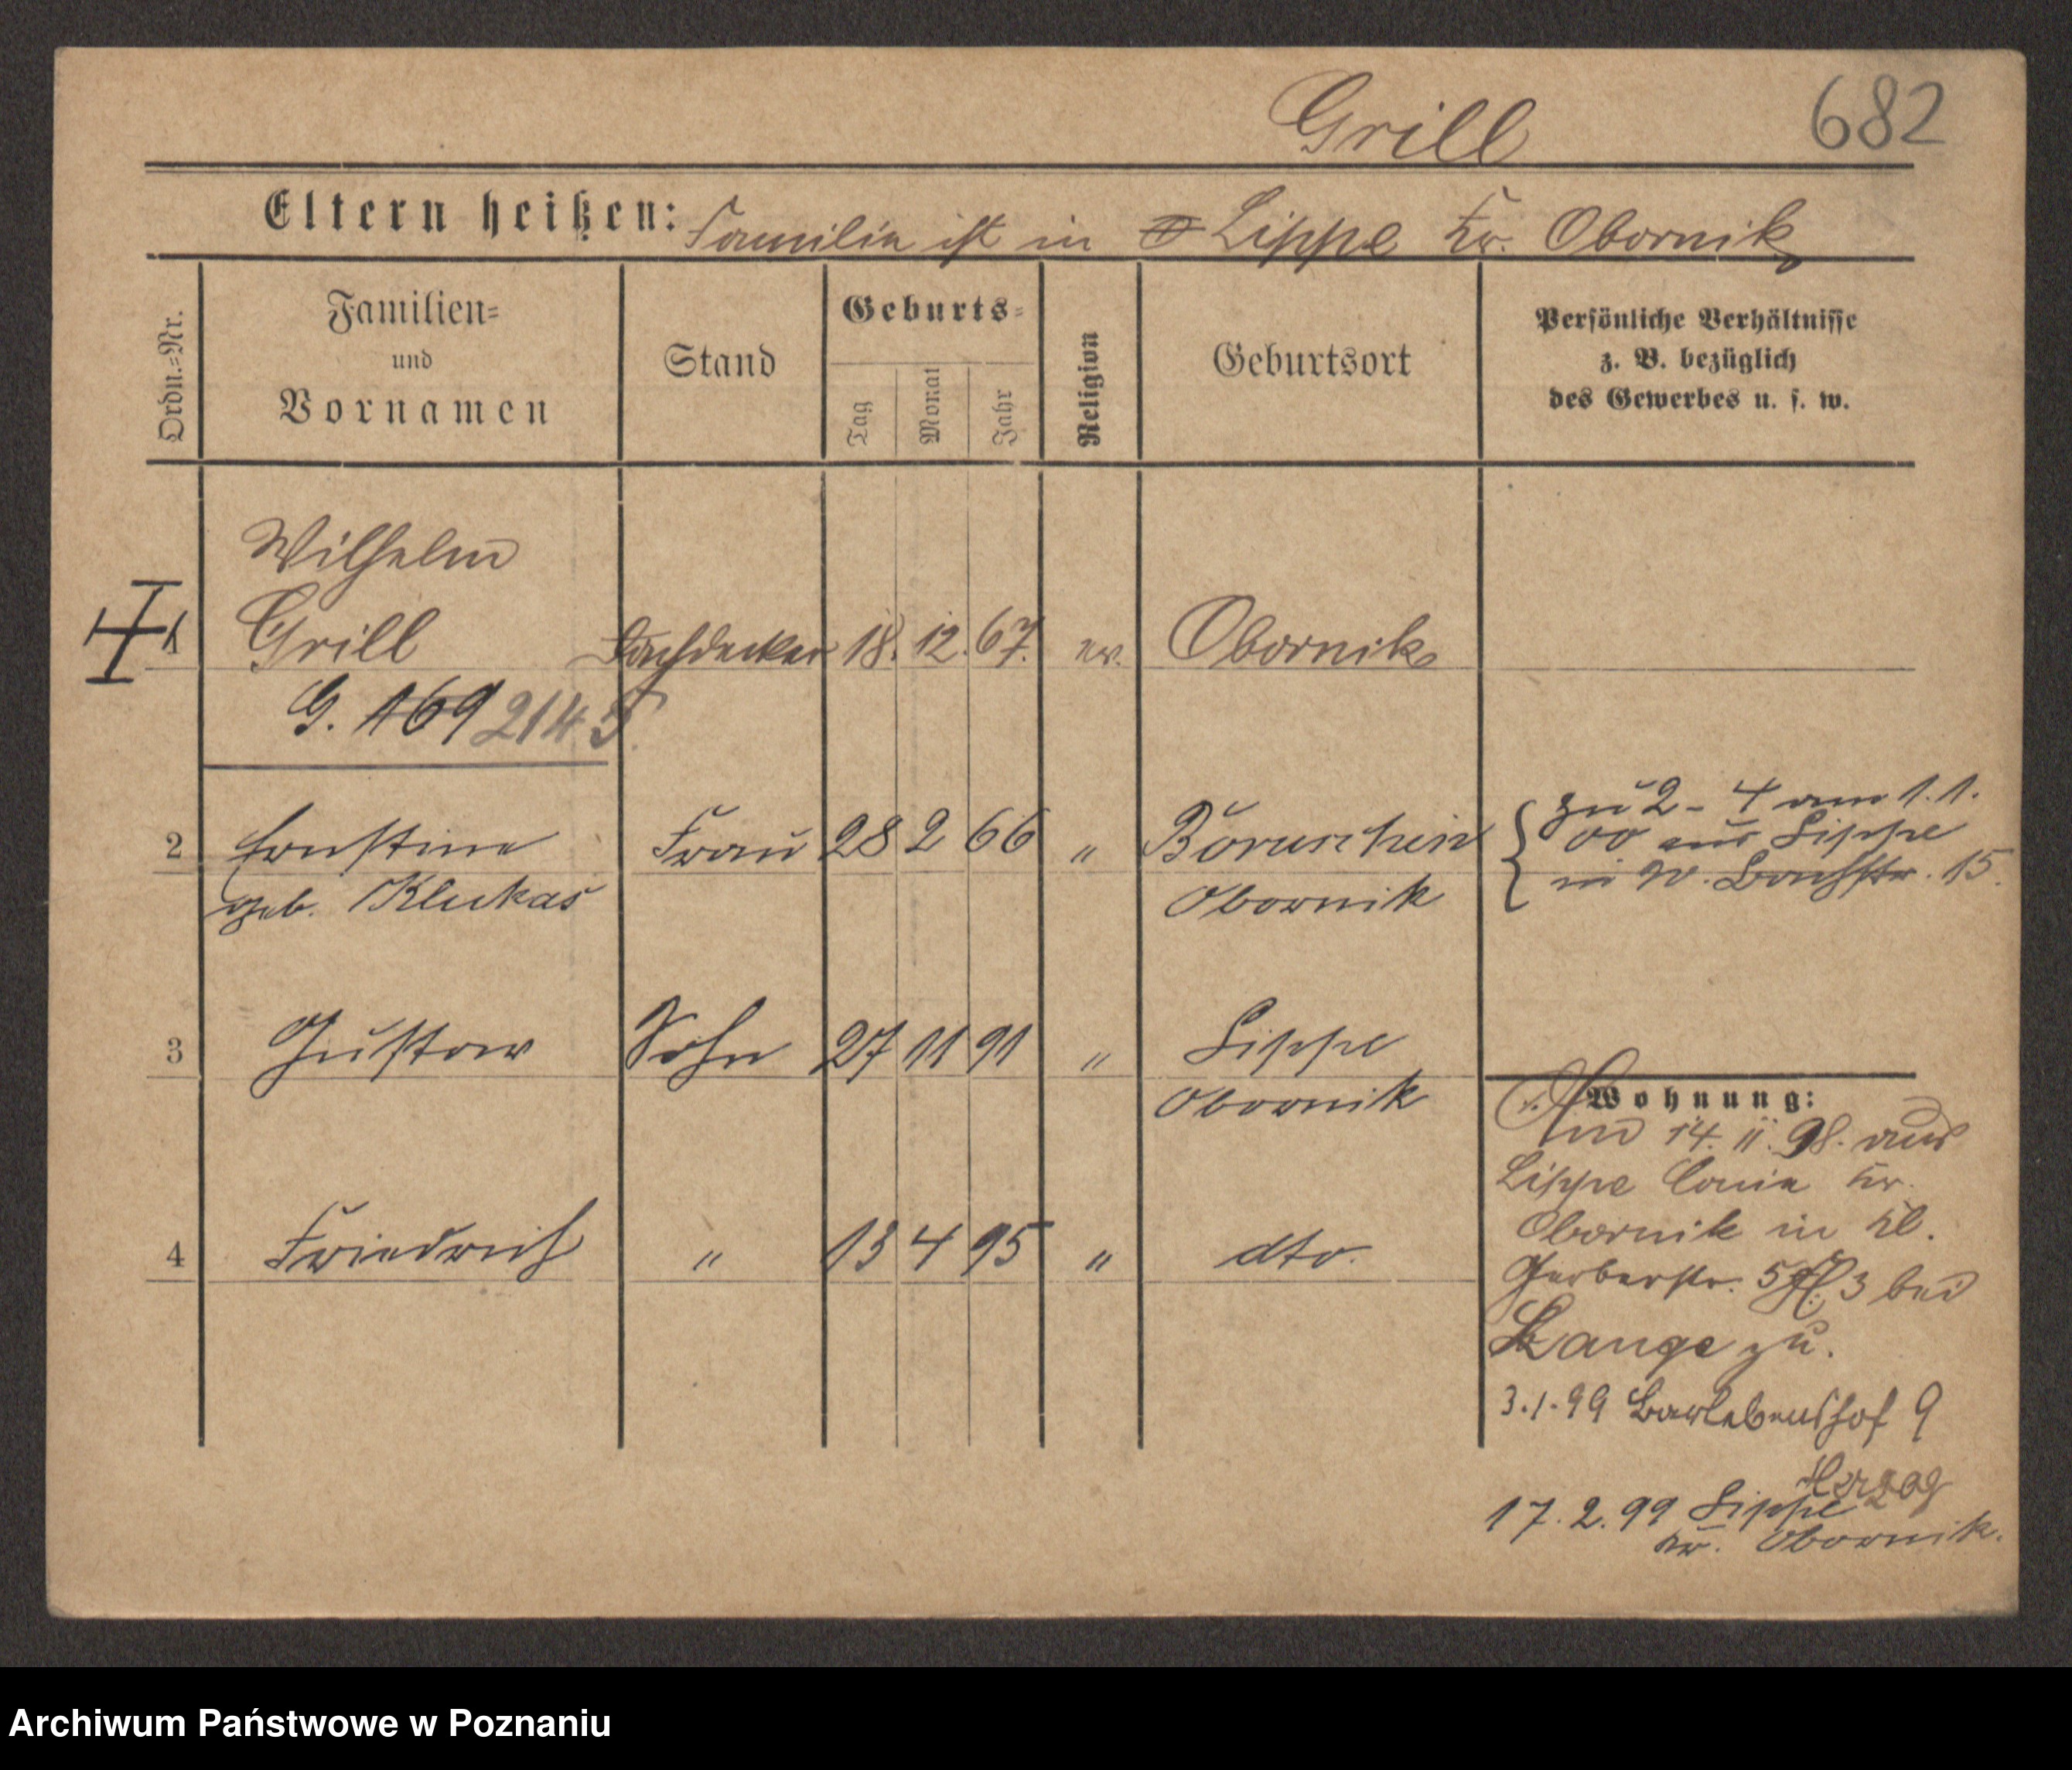 Grill
682
Eltern heißen: Familie ist in Lippe Kr. Obornik
Ordn.=Nr.
Familien=
und
Vornamen
Stand
Geburts=
Tag
Monat
Jahr
Religion
Geburtsort
Persönliche Verhältnisse
z. B. bezüglich
des Gewerbes u. s. w.
Wilhelm
1 Grill Dachdecker 18. 12. 67. ev. Obornik
G. 169 2145
2 Ernstine Frau 28 2 66 " Boruschin
geb. Klukas Obornik
zu 2 - 4 am 1.1.
00 aus Lippe
in W. Bachstr. 15.
3 Gustav Sohn 27 11 91 " Lippe
Obornik
4 Friedrich " 13 4 95 " dto.
Wohnung:
Am 14. 11. 98. aus
Lippe Kr.
Obornik in Kl.
Gerberstr. 5 H. 3 bei
Lange zu.
3.1.99 Barlebenshof 9
Herzog
17. 2. 99 Lippe
Kr. Obornik.
Archiwum Państwowe w Poznaniu